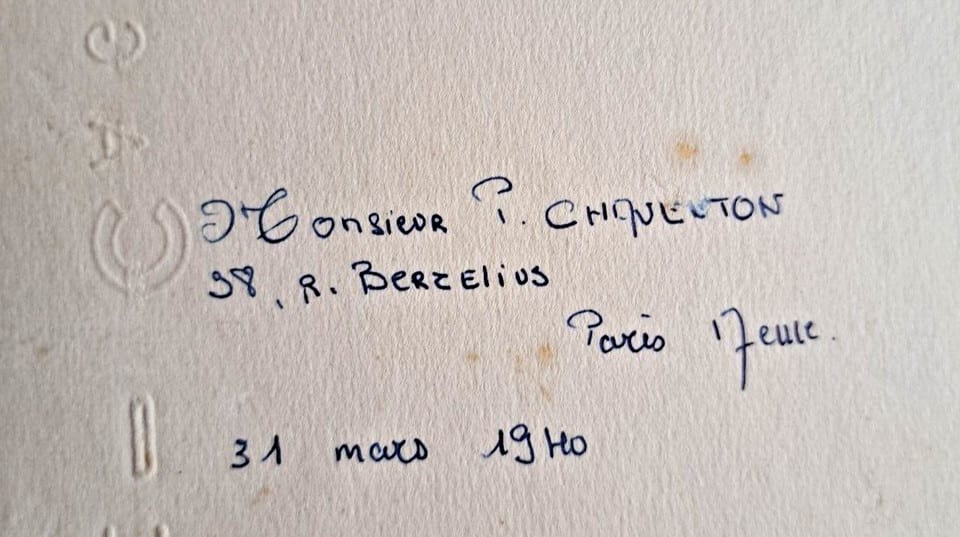 Monsieur P. CHIQUELTON
38, R. BERZELIUS
Paris 17eme.
31 mars 1940